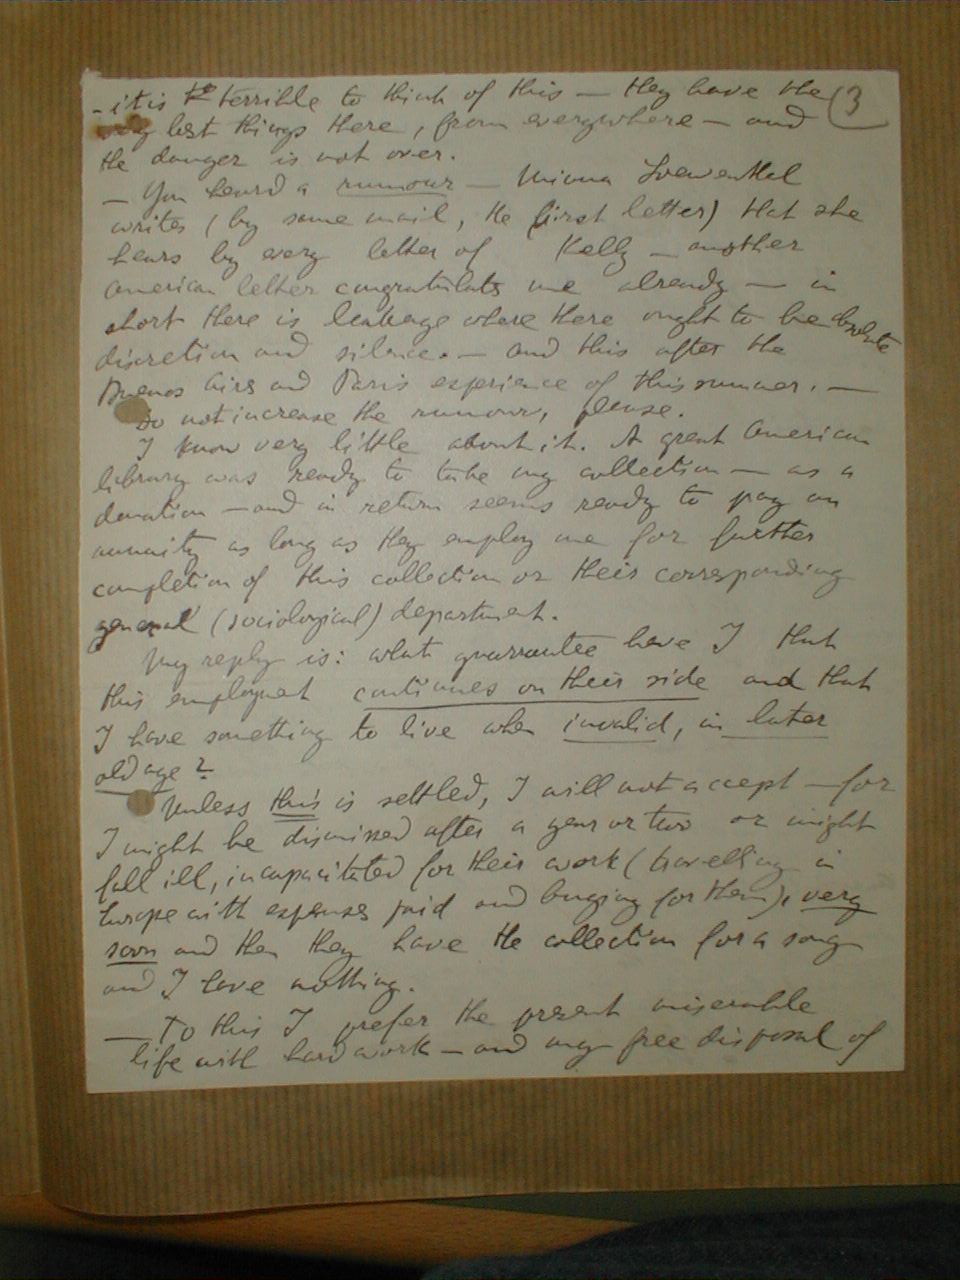 - it is terrible to think of this — they have the (3
very best things there, from everywhere — and
the danger is not over.
— You heard a rumour — Minna Loewenthal
writes (by some mail, the first letter) that she
hears by every letter of Kelly — another
American letter congratulates me already — in
short there is leakage where there ought to be absolute
discretion and silence. — and this after the
Buenos Aires and Paris experience of this summer. —
Do not increase the rumour, please.
I know very little about it. A great American
library was ready to take my collection — as a
donation — and in return seems ready to pay an
annuity as long as they employ me for further
completion of this collection or their corresponding
general (sociological) department.
My reply is: what guarrantee have I that
this employment continues on their side and that
I have something to live when invalid, in later
old age?
Unless this is settled, I will not accept — for
I might be dismissed after a year or two or might
fall ill, incapacitated for their work (travelling in
Europe with expenses paid and buying for them), very
soon and then they have the collection for a song
and I have nothing.
— To this I prefer the present miserable
life with hard work — and my free disposal of